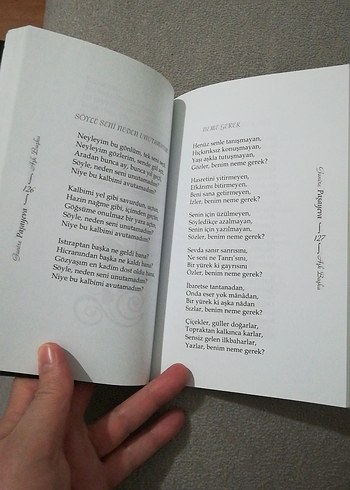 SÖYLE SENİ NEDEN
Neyleyim bu gönlüm, tek seni
Neyleyim gözlerim, sende
Aradan bunca ay, bunca yıl
Söyle, neden seni unutamadım?
Niye bu kalbimi avutamadım?
Kalbimi yel gibi savurdun, uçtun,
Hazin nağme gibi, içimden
Göğsüme onulmaz bir yara açtın,
Söyle, neden seni unutamadım?
Niye bu kalbimi avutamadım?
Istıraptan başka ne geldi bana?
Hicranından başka ne kaldı bana?
Gözyaşım en kadim dost oldu bana,
Söyle, neden seni unutamadım?
Niye bu kalbimi avutamadım?
Papayeva
NEME GEREK
Henüz senle tanışmayan,
Hıçkırıksız konuşmayan,
Yaşı aşkla tutuşmayan,
Gözler, benim neme gerek?
Hasretini yitirmeyen,
Efkârını bitirmeyen,
Beni sana getirmeyen,
İzler, benim neme gerek?
Senin için üzülmeyen,
Söyledikçe azalmayan,
Senin için yazılmayan,
Sözler, benim neme gerek?
Sevda sanır sanrısını,
Ne seni ne Tanrı'sını,
Bir yürek ki gayrısını
Özler, benim neme gerek?
İbaretse tantanadan,
Onda eser yok mânâdan,
Bir yürek ki aşka nâdan
Sızlar, benim neme gerek?
Çiçekler, güller doğarlar,
Topraktan kalkınca karlar,
Sensiz gelen ilkbaharlar,
Yazlar, benim neme gerek?
Papayeva